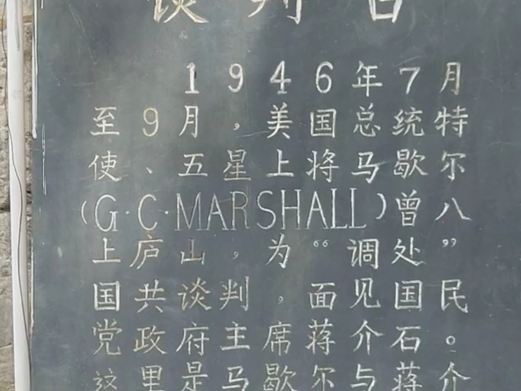 谈判
1946年7月
至9月，美国总统特
使、五星上将马歇尔
(G·C·MARSHALL)曾八
上庐山，为“调处”
国共谈判，面见国民
党政府主席蒋介石。
这里是马歇尔与蒋介